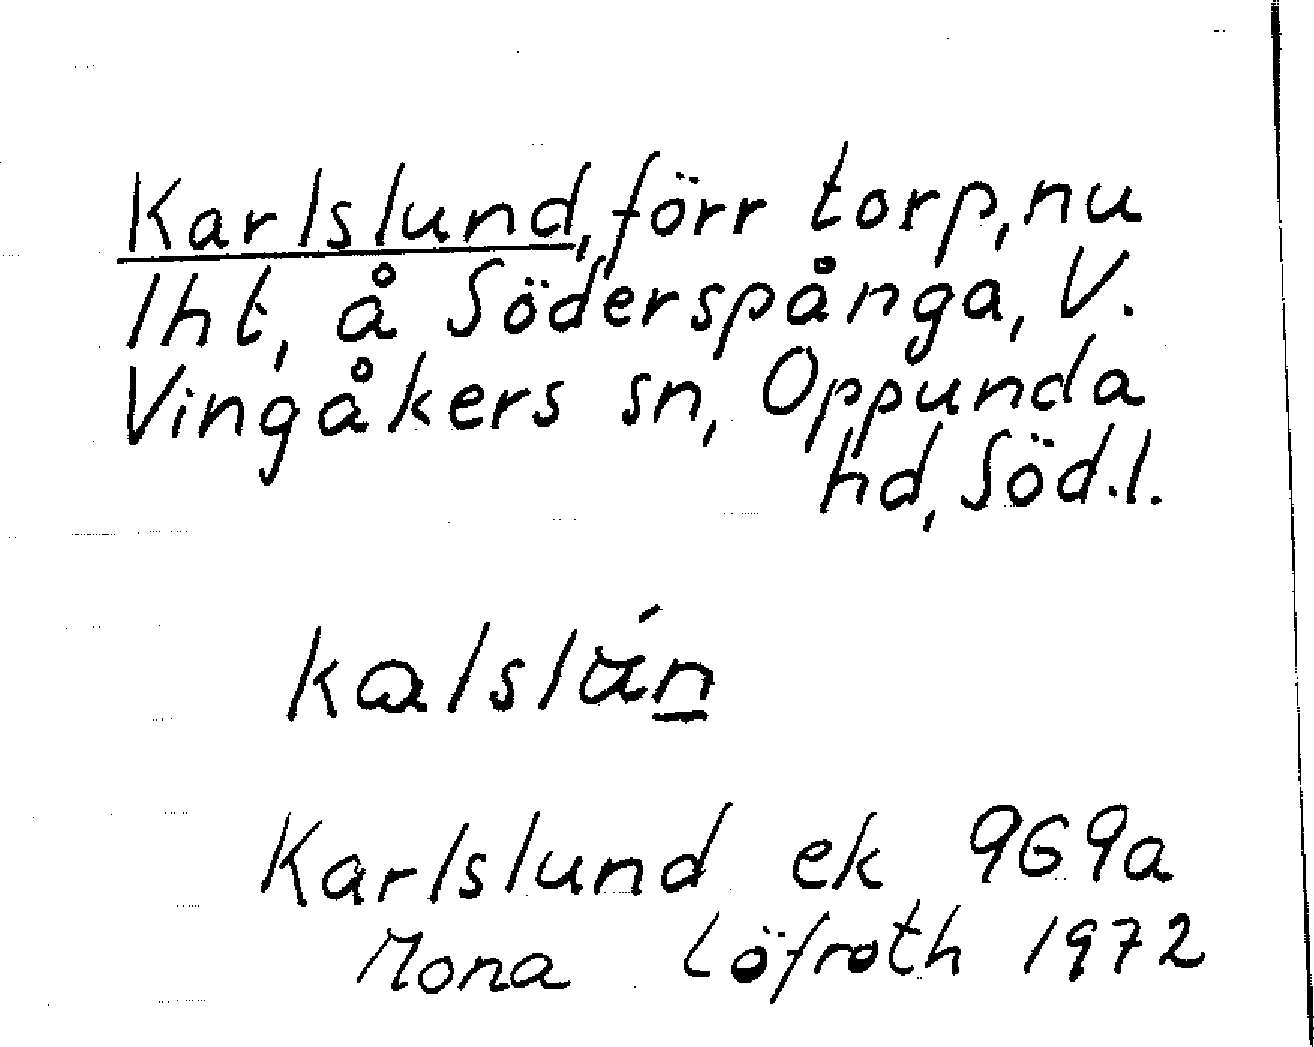 Karlslund, förr torp, nu
lht, å Söderspånga, V.
Vingåkers sn, Oppunda
hd, Söd.l.
kalslún
Karlslund ek 969a
Mona Löfroth 1972